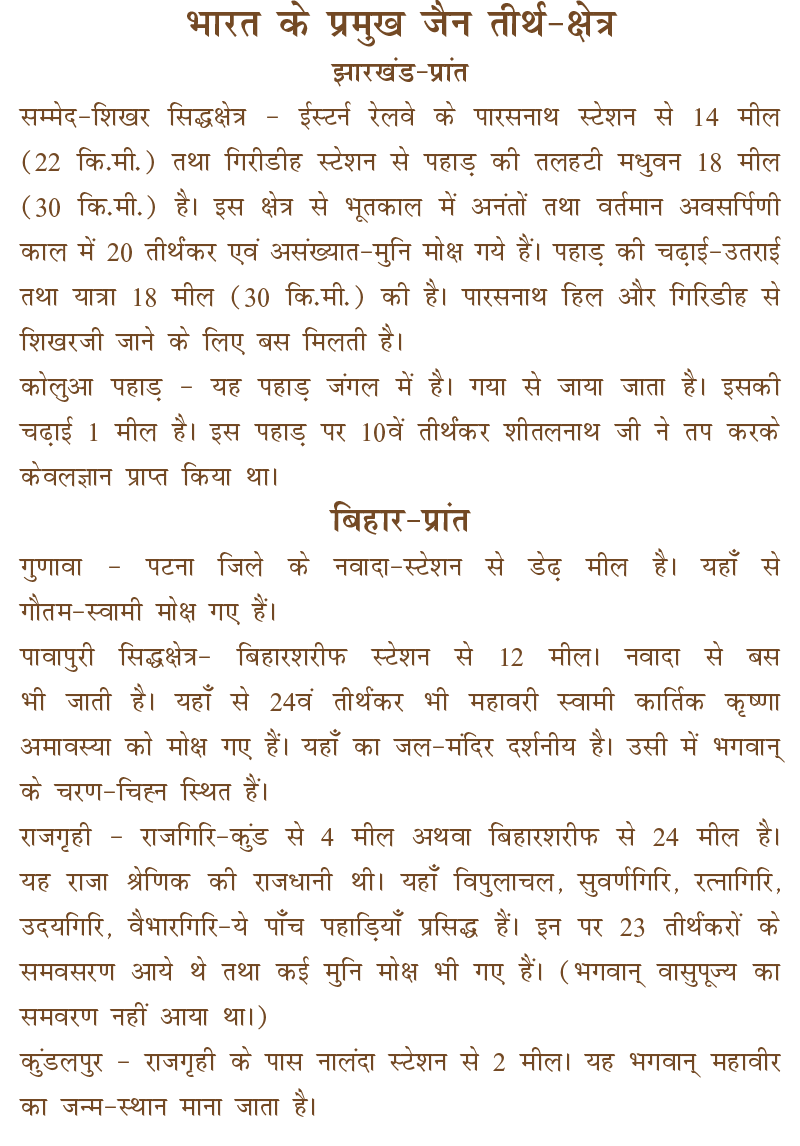 भारत के प्रमुख जैन तीर्थ-क्षेत्र
झारखंड-प्रांत
सम्मेद-शिखर सिद्धक्षेत्र - ईस्टर्न रेलवे के पारसनाथ स्टेशन से 14 मील
(22 कि.मी.) तथा गिरीडीह स्टेशन से पहाड़ की तलहटी मधुवन 18 मील
(30 कि.मी.) है। इस क्षेत्र से भूतकाल में अनंतों तथा वर्तमान अवसर्पिणी
काल में 20 तीर्थंकर एवं असंख्यात-मुनि मोक्ष गये हैं। पहाड़ की चढ़ाई-उतराई
तथा यात्रा 18 मील (30 कि.मी.) की है। पारसनाथ हिल और गिरिडीह से
शिखरजी जाने के लिए बस मिलती है।
कोलुआ पहाड़ - यह पहाड़ जंगल में है। गया से जाया जाता है। इसकी
चढ़ाई 1 मील है। इस पहाड़ पर 10वें तीर्थंकर शीतलनाथ जी ने तप करके
केवलज्ञान प्राप्त किया था।
बिहार-प्रांत
गुणावा - पटना जिले के नवादा-स्टेशन से डेढ़ मील है। यहाँ से
गौतम-स्वामी मोक्ष गए हैं।
पावापुरी सिद्धक्षेत्र- बिहारशरीफ स्टेशन से 12 मील। नवादा से बस
भी जाती है। यहाँ से 24वं तीर्थंकर भी महावरी स्वामी कार्तिक कृष्णा
अमावस्या को मोक्ष गए हैं। यहाँ का जल-मंदिर दर्शनीय है। उसी में भगवान्
के चरण-चिह्न स्थित हैं।
राजगृही - राजगिरि-कुंड से 4 मील अथवा बिहारशरीफ से 24 मील है।
यह राजा श्रेणिक की राजधानी थी। यहाँ विपुलाचल, सुवर्णगिरि, रत्नागिरि,
उदयगिरि, वैभारगिरि-ये पाँच पहाड़ियाँ प्रसिद्ध हैं। इन पर 23 तीर्थकरों के
समवसरण आये थे तथा कई मुनि मोक्ष भी गए हैं। (भगवान् वासुपूज्य का
समवरण नहीं आया था।)
कुंडलपुर - राजगृही के पास नालंदा स्टेशन से 2 मील। यह भगवान् महावीर
का जन्म-स्थान माना जाता है।